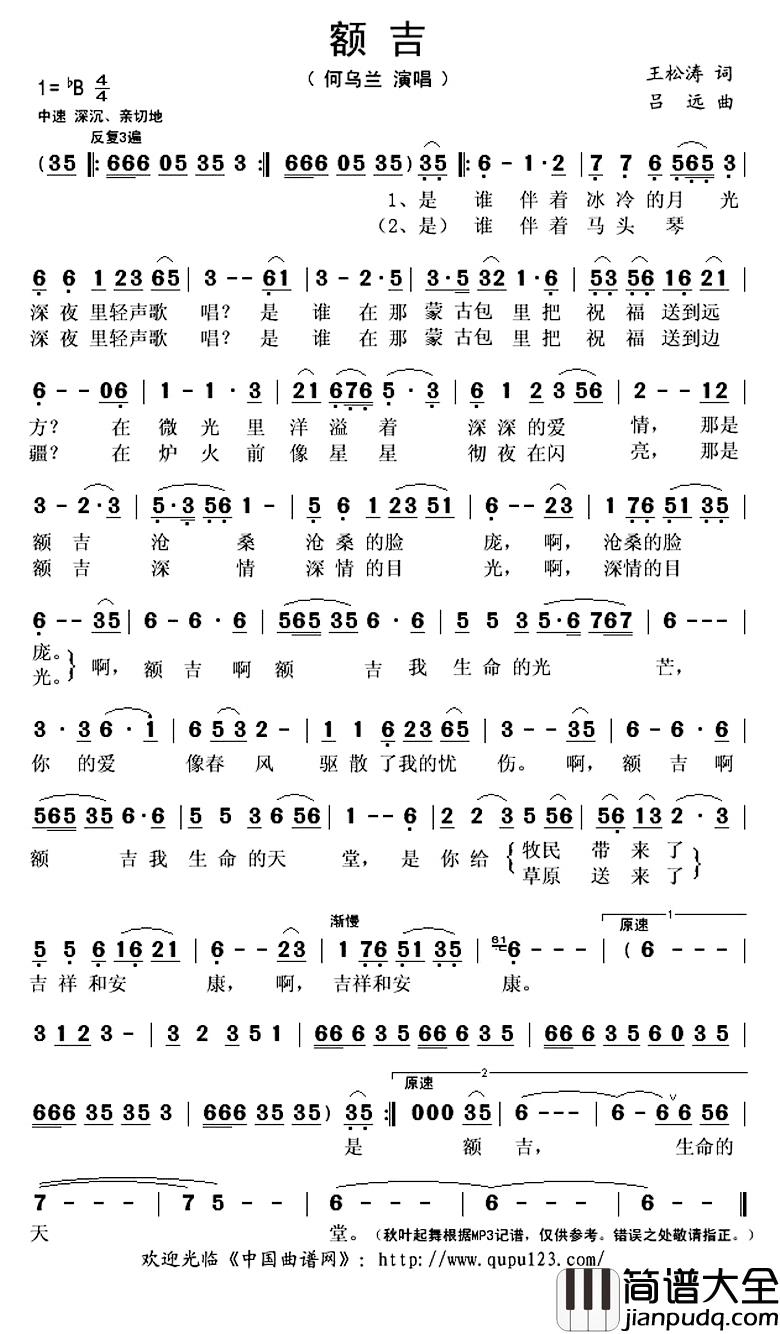 额 吉
（何乌兰 演唱）
王松涛 词
吕 远 曲
1= ♭B 4/4
中速 深沉、亲切地
反复3遍
( 35 ‖: 666 05 35 3 :‖ 666 05 35 ) 35 ‖: 6 - 1·2 | 7 7 6 565 3 |
1、是 谁 伴 着 冰 冷 的 月 光
（2、是） 谁 伴 着 马 头 琴
6 6 1 23 65 | 3 - - 61 | 3 - 2·5 | 3·5 32 1·6 | 53 56 16 21 |
深 夜 里轻声歌 唱？ 是 谁 在 那 蒙 古包 里 把 祝 福 送到远
深 夜 里轻声歌 唱？ 是 谁 在 那 蒙 古包 里 把 祝 福 送到边
6 - - 06 | 1 - 1 · 3 | 21 676 5 · 3 | 6 1 2 3 56 | 2 - - 12 |
方？ 在 微 光 里 洋 溢 着 深 深 的爱 情， 那是
疆？ 在 炉 火 前 像 星 星 彻 夜 在闪 亮， 那是
3 - 2·3 | 5·3 56 1 - | 5 6 1 23 51 | 6 - - 23 | 1 76 51 35 |
额 吉 沧 桑 沧 桑 的脸 庞， 啊， 沧桑的脸
额 吉 深 情 深 情 的目 光， 啊， 深情的目
6 - - 35 | 6 - 6 · 6 | 565 35 6 · 6 | 5 5 3 5·6 767 | 6 - - - |
庞。 啊， 额 吉 啊 额 吉 我 生 命 的光 芒，
光。
3 · 3 6 · 1 | 6 53 2 - | 1 1 6 23 65 | 3 - - 35 | 6 - 6 · 6 |
你 的爱 像春 风 驱 散 了我的忧 伤。 啊， 额 吉 啊
565 35 6·6 | 5 5 3 6 56 | 1 - - 6 | 2 2 3 5 56 | 56 13 2 · 3 |
额 吉 我 生 命 的天 堂， 是 你 给 牧民 带 来 了
草原 送 来 了
渐慢
原速 1
5 5 6 16 21 | 6 - - 23 | 1 76 51 35 | 61 6 - - - | ( 6 - - - |
吉 祥 和安 康， 啊， 吉祥和安 康。
3 1 2 3 - | 3 2 3 5 1 | 66 6 3 5 66 6 3 5 | 66 6 3 5 6 0 3 5 |
原速 2
666 35 35 3 | 666 35 35 ) 35 :‖ 000 35 | 6 - - - | 6 - 6 6 56 |
是 额 吉， 生命的
7 - - - | 7 5 - - | 6 - - - | 6 - - - ‖
天 堂。（秋叶起舞根据MP3记谱，仅供参考。错误之处敬请指正。）
欢迎光临《中国曲谱网》：http://www.qupu123.com/
简谱大全
jianpudq.com